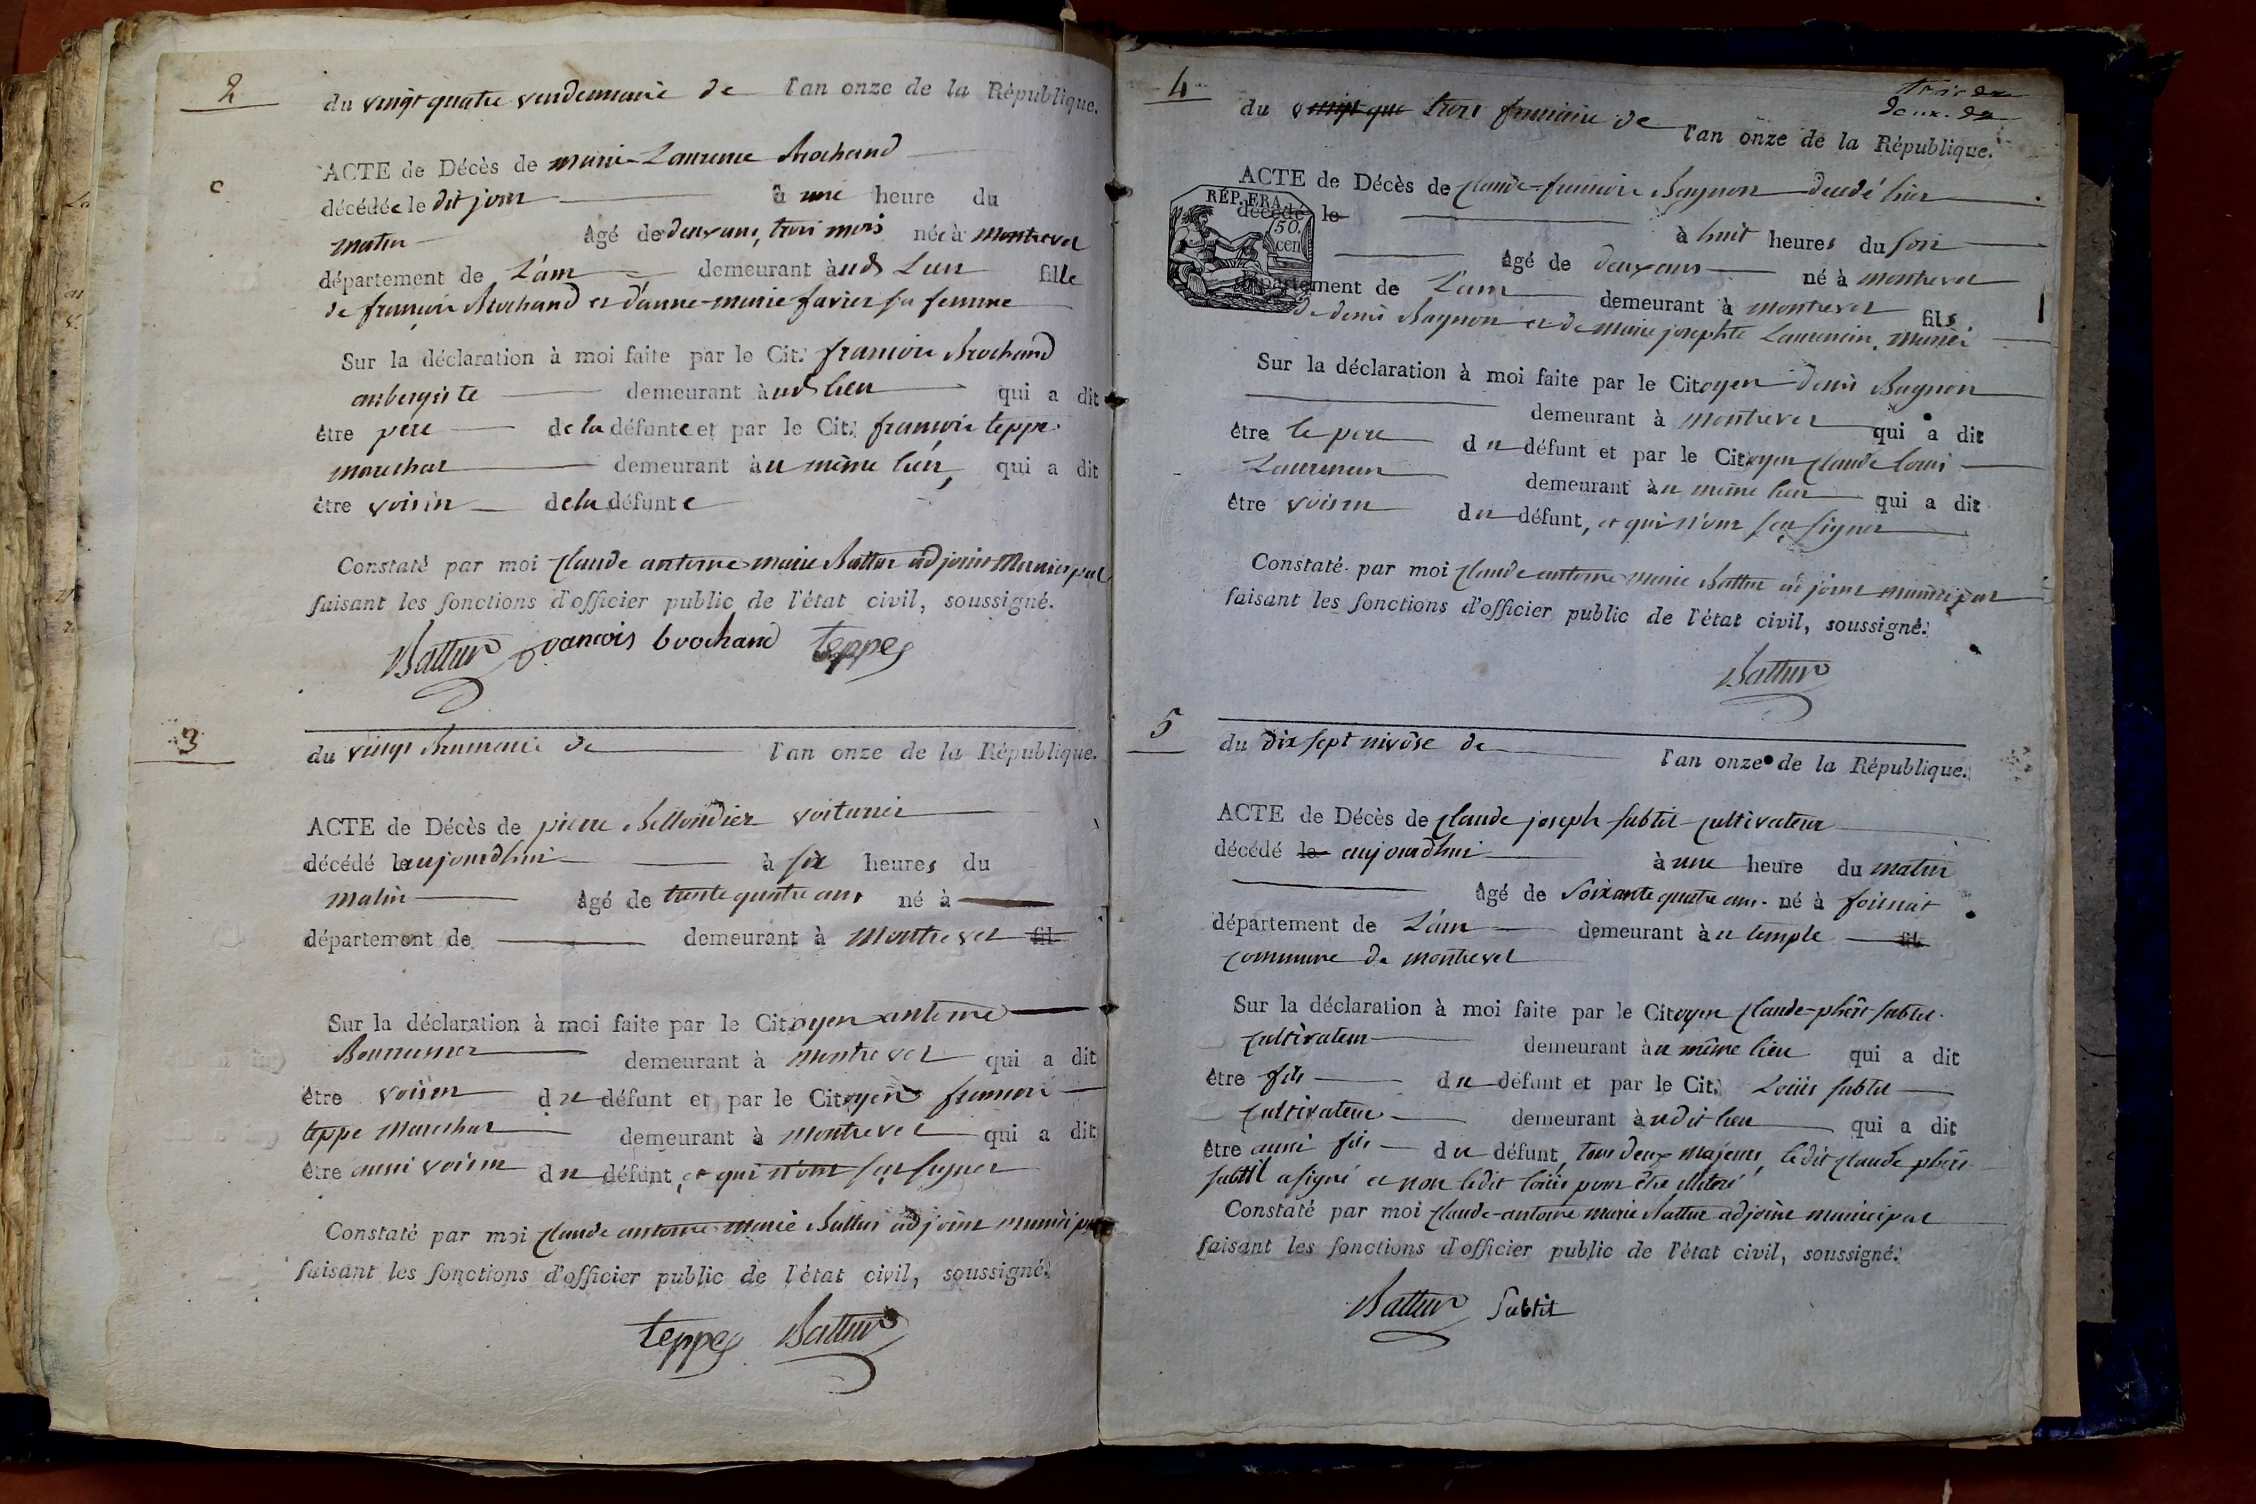 2
du vingt quatre vendemiaire de l'an onze de la République.
ACTE de Décès de marie-Laurence Brochand
décédée le dit jour à une heure du
matin âgé de deux ans, trois mois née à montrevel
département de L'ain demeurant audt Lieu fille
de françois Brochand et d'anne-marie favier sa femme
Sur la déclaration à moi faite par le Cit. francois Brochand
aubergiste demeurant audt lieu qui a dit
être pere de la défunte et par le Cit. francois teppe
mareshal demeurant au même lieu, qui a dit
être voisin de la défunte
Constaté par moi Claude antoine marie Battur adjoint Municipal
faisant les fonctions d'officier public de l'état civil, soussigné.
Battur francois brochand teppe
3
du vingt Brumaire de l'an onze de la République.
ACTE de Décès de pierre voiturier
décédé le aujourdhui à six heures du
matin âgé de trente quatre ans né à
département de demeurant à Montrevel fil
Sur la déclaration à moi faite par le Citoyen antoine
demeurant à montrevel qui a dit
être voisin du défunt et par le Citoyen francois
teppe Mareshal demeurant à Montrevel qui a dit
être aussi voisin du défunt, et qui n'ont sçu signer
Constaté par moi Claude antoine marie Battur adjoint municipal
faisant les fonctions d'officier public de l'état civil, soussigné.
teppe Battur
4
trois de
deux. de
du vingt qua trois frimaire de l'an onze de la République.
ACTE de Décès de Claude-francois Bagnon decedé hier
RÉP. FRA.
50.
cen
décédé le à huit heures du soir
âgé de deux ans né à montrevel
département de L'ain demeurant à montrevel fils
de denis Bagnon et de marie josephte Laurencin, mariés
Sur la déclaration à moi faite par le Citoyen denis Bagnon
demeurant à montrevel qui a dit
être le pere du défunt et par le Citoyen Claude louis
Laurencin demeurant au même lieu qui a dit
être voisin du défunt, et qui n'ont sçu signer
Constaté par moi Claude-antoine marie Battur adjoint municipal
faisant les fonctions d'officier public de l'état civil, soussigné.
Battur
5
du dix sept nivôse de l'an onze de la République.
ACTE de Décès de Claude joseph subtil cultivateur
décédé le aujourdhui à une heure du matin
âgé de soixante quatre ans né à foissiat
département de L'ain demeurant au temple fil
commune de montrevel
Sur la déclaration à moi faite par le Citoyen Claude-phért subtil
cultivateur demeurant au même lieu qui a dit
être fils du défunt et par le Cit. Loüis subtil
cultivateur demeurant audit lieu qui a dit
être aussi fils du défunt, tous deux majeurs, ledit Claude phért
subtil a signé et non ledit loüis pour être illiteré
Constaté par moi Claude-antoine marie Battur adjoint municipal
faisant les fonctions d'officier public de l'état civil, soussigné.
Battur Subtil